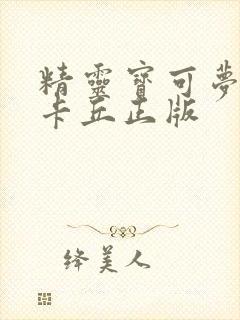 精靈寶可夢
卡丘正版
绛美人